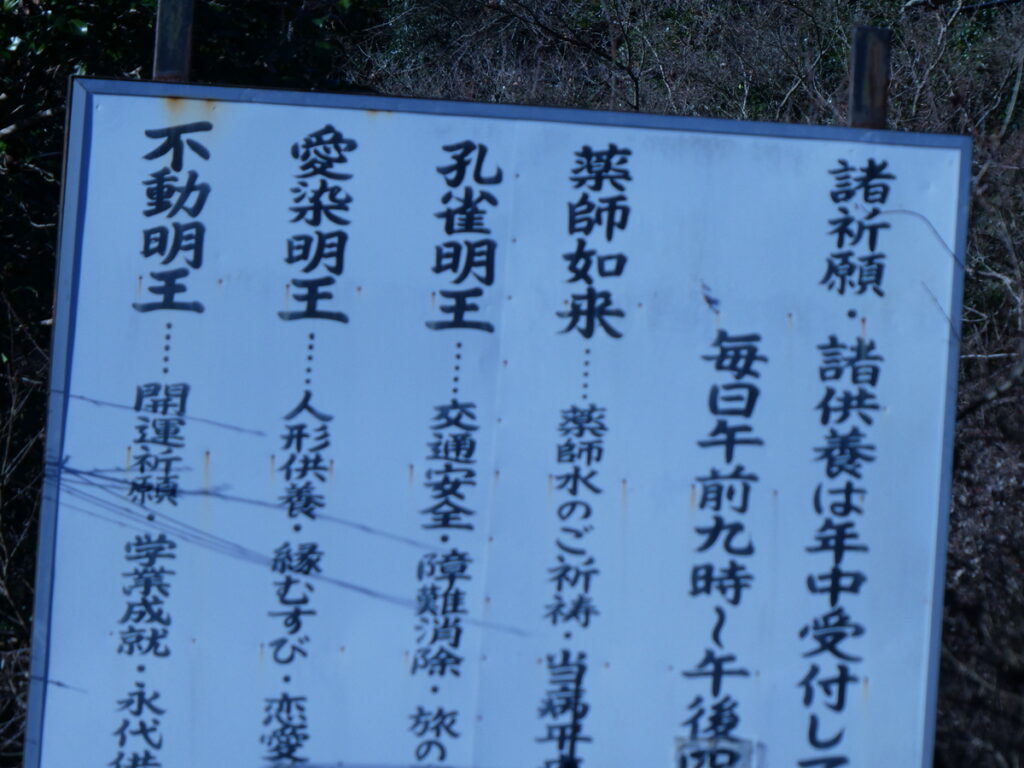 諸祈願・諸供養は年中受付して
毎日午前九時～午後四
薬師如来……薬師水のご祈祷・当病平
孔雀明王……交通安全・障難消除・旅の
愛染明王……人形供養・縁むすび・恋愛
不動明王……開運祈願・学業成就・永代供